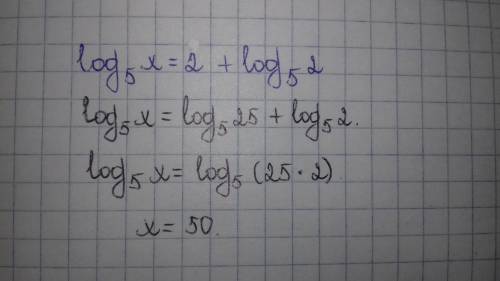 log₅x = 2 + log₅2
log₅x = log₅25 + log₅2.
log₅x = log₅(25·2)
x = 50.